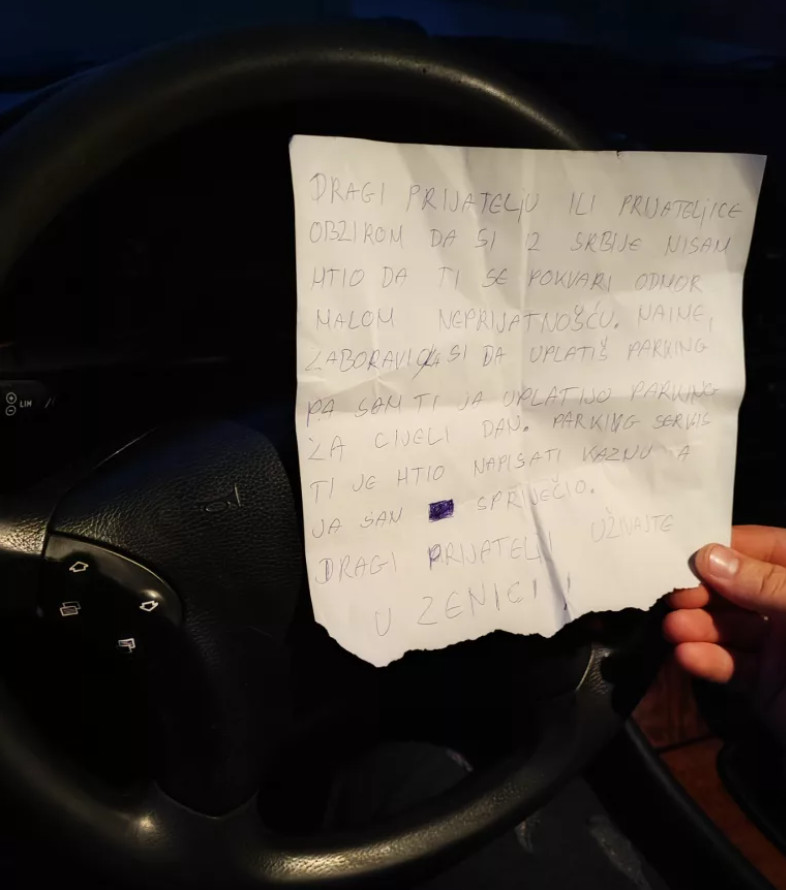 DRAGI PRIJATELJU ILI PRIJATELJICE
OBZIROM DA SI IZ SRBIJE NISAM
HTIO DA TI SE POKVARI ODMOR
MALOM NEPRIJATNOŠĆU. NAIME,
ZABORAVIO SI DA UPLATIŠ PARKING
PA SAM TI JA UPLATIJO PARKING
ZA CIJELI DAN. PARKING SERVIS
TI JE HTIO NAPISATI KAZNU A
JA SAM SPRIJEČIO.
DRAGI PRIJATELJI UŽIVAJTE
U ZENICI!
LIM